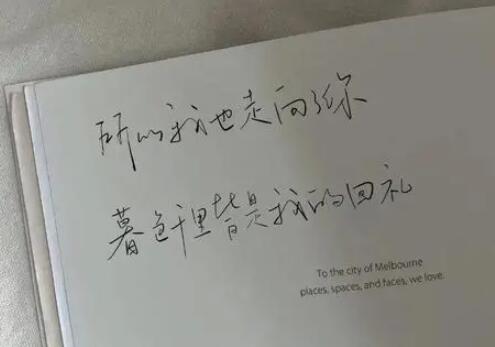 所以我也走向了你
暮色千里皆是我的回礼
To the city of Melbourne
places, spaces, and faces, we love.